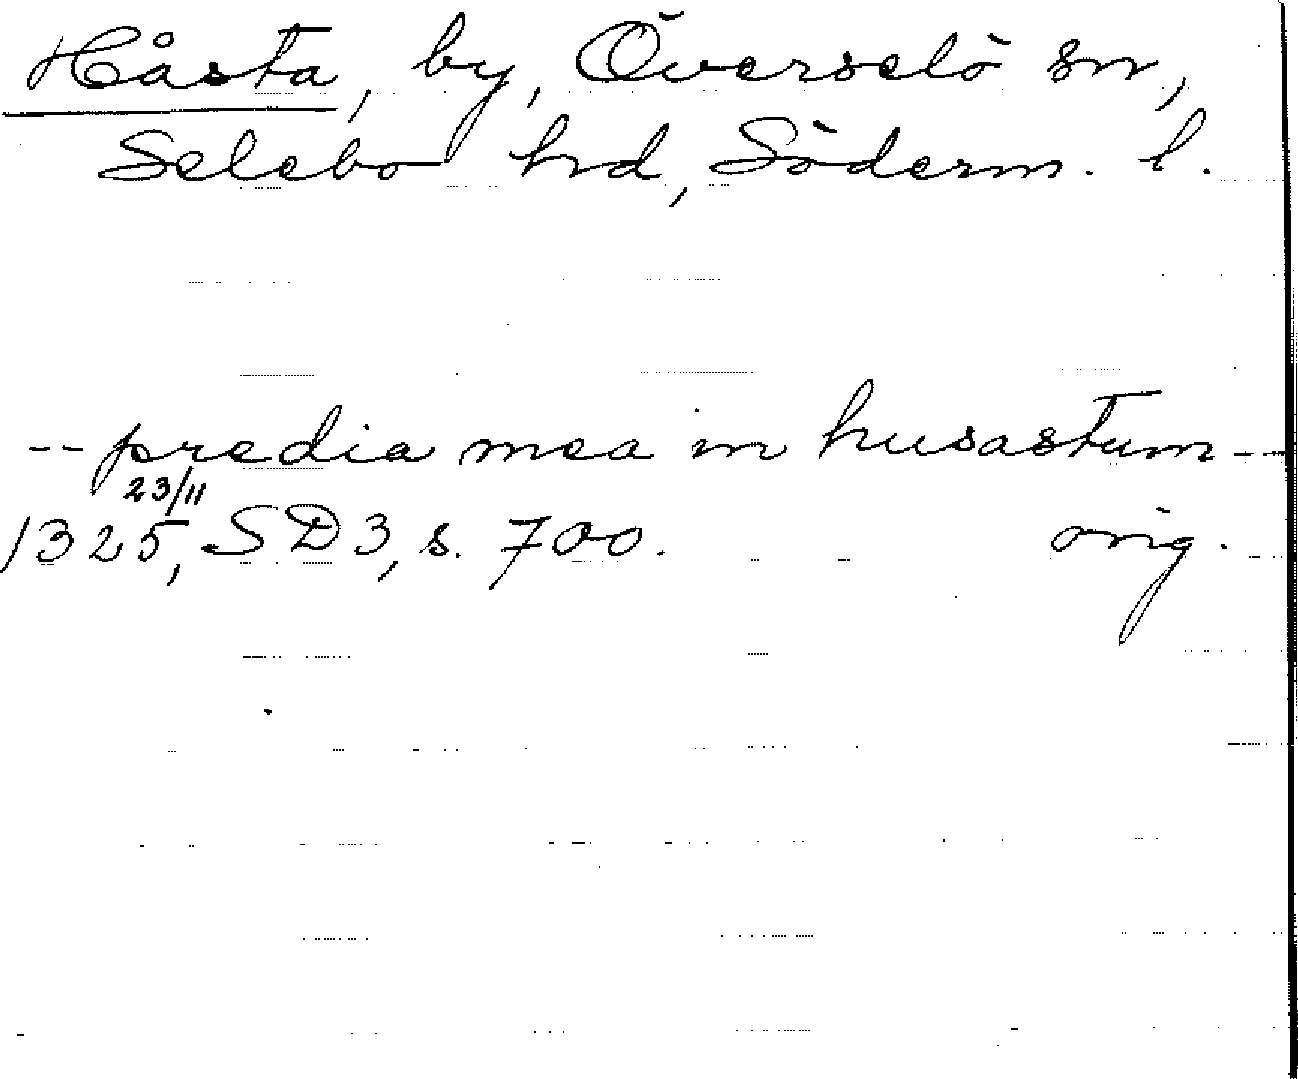 Håsta, by, Överselö sn,
Selebo hd, Söderm. l.
-- predia mea in husastum --
23/11
1325, SD 3, s. 700. orig.